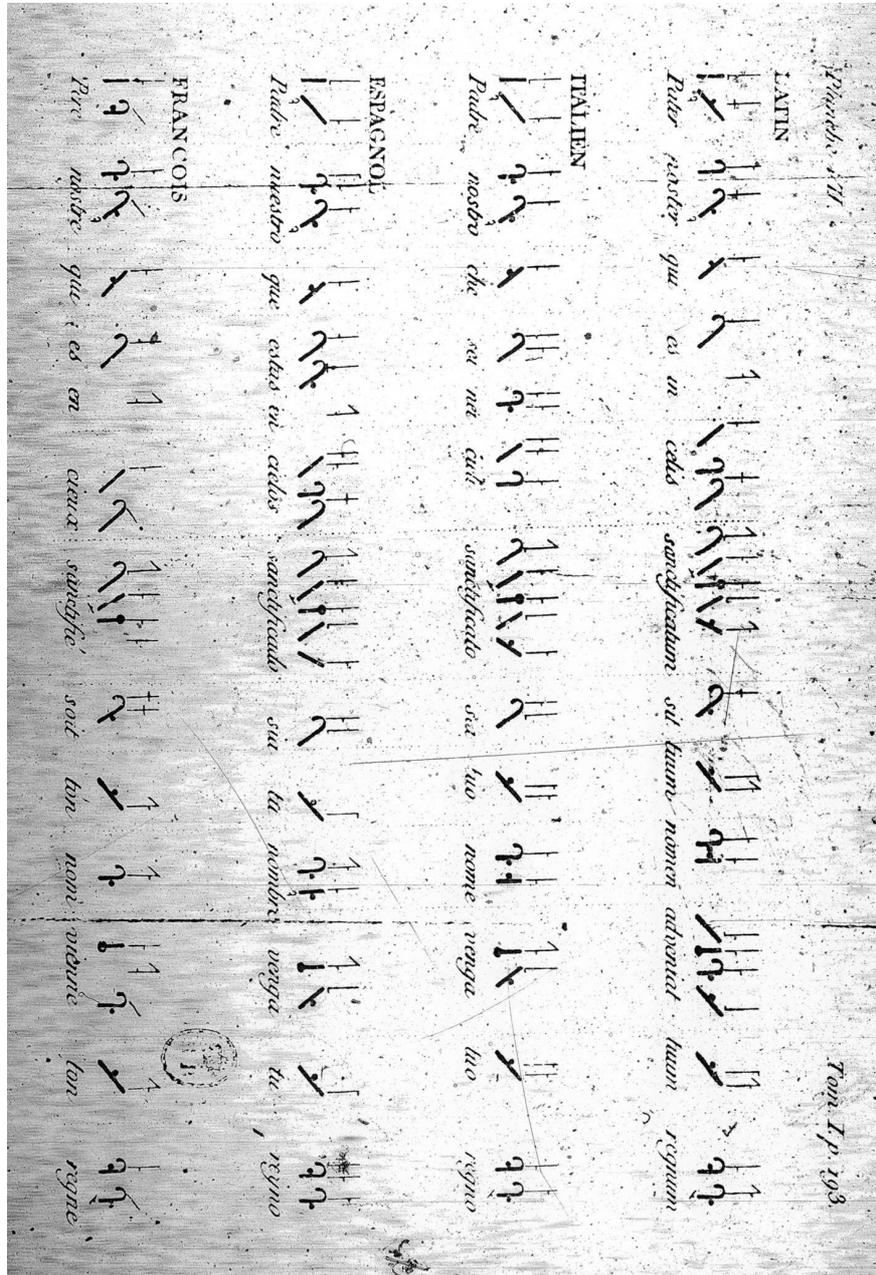 Planche VII Tom. I. p. 193.
LATIN
Pater noster qui es in celis sanctificatum sit tuum nomen adveniat tuum regnum
ITALIEN
Padre nostro che sei nei cieli sanctificato sia tuo nome venga tuo regno
ESPAGNOL
Padre nuestro que estas en cielos sanctificado sia tu nombre venga tu regno
FRANCOIS
Pere nostre qui es en cieux sanctifié soit ton nom vienne ton regne